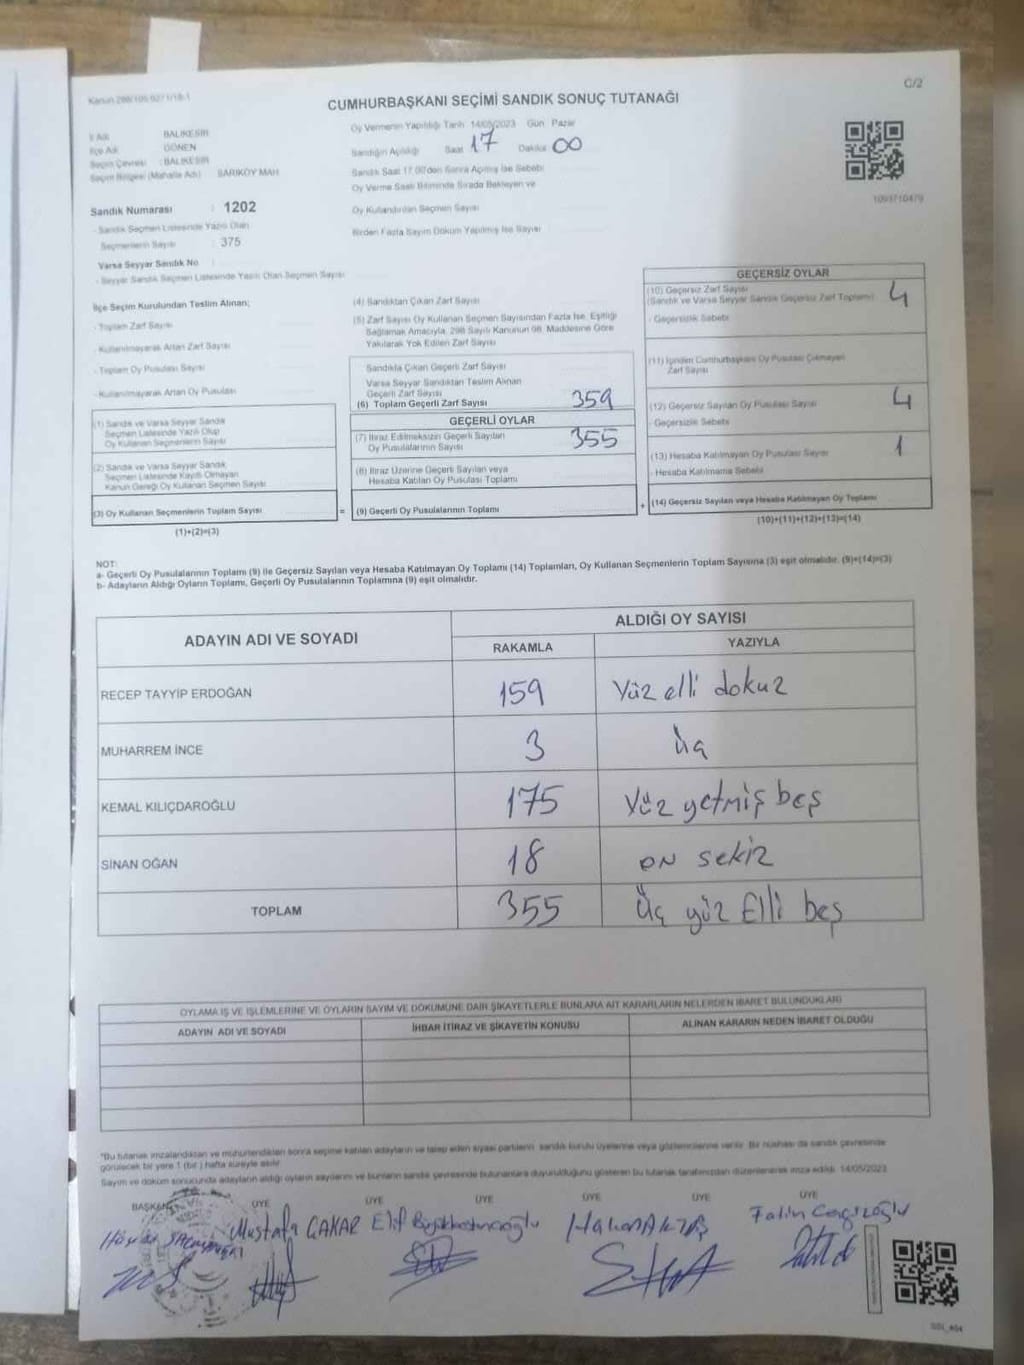 C/2
CUMHURBAŞKANI SEÇİMİ SANDIK SONUÇ TUTANAĞI
İl Adı BALIKESİR
İlçe Adı GÖNEN
Seçim Çevresi : BALIKESİR
Seçim Bölgesi (Mahalle Adı) SARIKÖY MAH.
Oy Vermenin Yapıldığı Tarih 14/05/2023 Gün Pazar
Sandığın Açıldığı Saat 17 Dakika 00
Sandık Saat 17.00'den Sonra Açılmış İse Sebebi
Oy Verme Saati Bitiminde Sırada Bekleyen ve
Oy Kullandırılan Seçmen Sayısı
Birden Fazla Sayım Döküm Yapılmış İse Sayısı
1093710479
Sandık Numarası : 1202
- Sandık Seçmen Listesinde Yazılı Olan
Seçmenlerin Sayısı : 375
Varsa Seyyar Sandık No
- Seyyar Sandık Seçmen Listesinde Yazılı Olan Seçmen Sayısı
İlçe Seçim Kurulundan Teslim Alınan;
- Toplam Zarf Sayısı
- Kullanılmayarak Artan Zarf Sayısı
- Toplam Oy Pusulası Sayısı
- Kullanılmayarak Artan Oy Pusulası
(1) Sandık ve Varsa Seyyar Sandık
Seçmen Listesinde Yazılı Olup
Oy Kullanan Seçmenlerin Sayısı
(2) Sandık ve Varsa Seyyar Sandık
Seçmen Listesinde Kayıtlı Olmayan
Kanun Gereği Oy Kullanan Seçmen Sayısı
(3) Oy Kullanan Seçmenlerin Toplam Sayısı =
(1)+(2)=(3)
(4) Sandıktan Çıkan Zarf Sayısı
(5) Zarf Sayısı Oy Kullanan Seçmen Sayısından Fazla İse, Eşitliği
Sağlamak Amacıyla, 298 Sayılı Kanunun 98. Maddesine Göre
Yakılarak Yok Edilen Zarf Sayısı
Sandıkta Çıkan Geçerli Zarf Sayısı
Varsa Seyyar Sandıktan Teslim Alınan
Geçerli Zarf Sayısı
(6) Toplam Geçerli Zarf Sayısı 359
GEÇERLİ OYLAR
(7) İtiraz Edilmeksizin Geçerli Sayılan
Oy Pusulalarının Sayısı 355
(8) İtiraz Üzerine Geçerli Sayılan veya
Hesaba Katılan Oy Pusulası Toplamı
(9) Geçerli Oy Pusulalarının Toplamı +
GEÇERSİZ OYLAR
(10) Geçersiz Zarf Sayısı
(Sandık ve Varsa Seyyar Sandık Geçersiz Zarf Toplamı) 4
- Geçersizlik Sebebi
(11) İçinden Cumhurbaşkanı Oy Pusulası Çıkmayan
Zarf Sayısı
(12) Geçersiz Sayılan Oy Pusulası Sayısı 4
- Geçersizlik Sebebi
(13) Hesaba Katılmayan Oy Pusulası Sayısı 1
- Hesaba Katılmama Sebebi
(14) Geçersiz Sayılan veya Hesaba Katılmayan Oy Toplamı
(10)+(11)+(12)+(13)=(14)
NOT:
a- Geçerli Oy Pusulalarının Toplamı (9) ile Geçersiz Sayılan veya Hesaba Katılmayan Oy Toplamı (14) Toplamları, Oy Kullanan Seçmenlerin Toplam Sayısına (3) eşit olmalıdır. (9)+(14)=(3)
b- Adayların Aldığı Oyların Toplamı, Geçerli Oy Pusulalarının Toplamına (9) eşit olmalıdır.
ADAYIN ADI VE SOYADI
ALDIĞI OY SAYISI
RAKAMLA YAZIYLA
RECEP TAYYİP ERDOĞAN 159 Yüz elli dokuz
MUHARREM İNCE 3 Üç
KEMAL KILIÇDAROĞLU 175 Yüz yetmiş beş
SİNAN OĞAN 18 on sekiz
TOPLAM 355 Üç yüz Elli beş
OYLAMA İŞ VE İŞLEMLERİNE VE OYLARIN SAYIM VE DÖKÜMÜNE DAİR ŞİKAYETLERLE BUNLARA AİT KARARLARIN NELERDEN İBARET BULUNDUKLARI
ADAYIN ADI VE SOYADI İHBAR İTİRAZ VE ŞİKAYETİN KONUSU ALINAN KARARIN NEDEN İBARET OLDUĞU
*Bu tutanak imzalandıktan ve mühürlendikten sonra seçime katılan adayların ve talep eden siyasi partilerin sandık kurulu üyelerine veya gözlemcilerine verilir. Bir nüshası da sandık çevresinde
görülecek bir yere 1 (bir) hafta süreyle asılır.
Sayım ve döküm sonucunda adayların aldığı oyların sayılarını ve bunların sandık çevresinde bulunanlara duyurulduğunu gösteren bu tutanak tarafımızdan düzenlenerek imza edildi. 14/05/2023
BAŞKAN ÜYE ÜYE ÜYE ÜYE ÜYE ÜYE
Mustafa ÇAKAR Elif